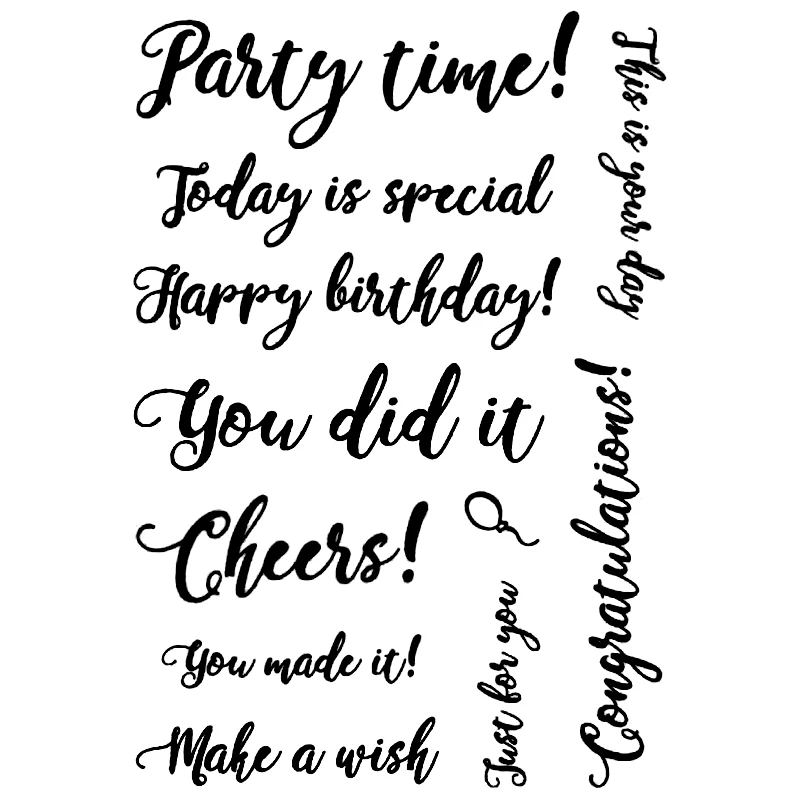 Party time!
This is your day
Today is special
Happy birthday!
You did it
Congratulations!
Cheers!
Just for you
You made it!
Make a wish